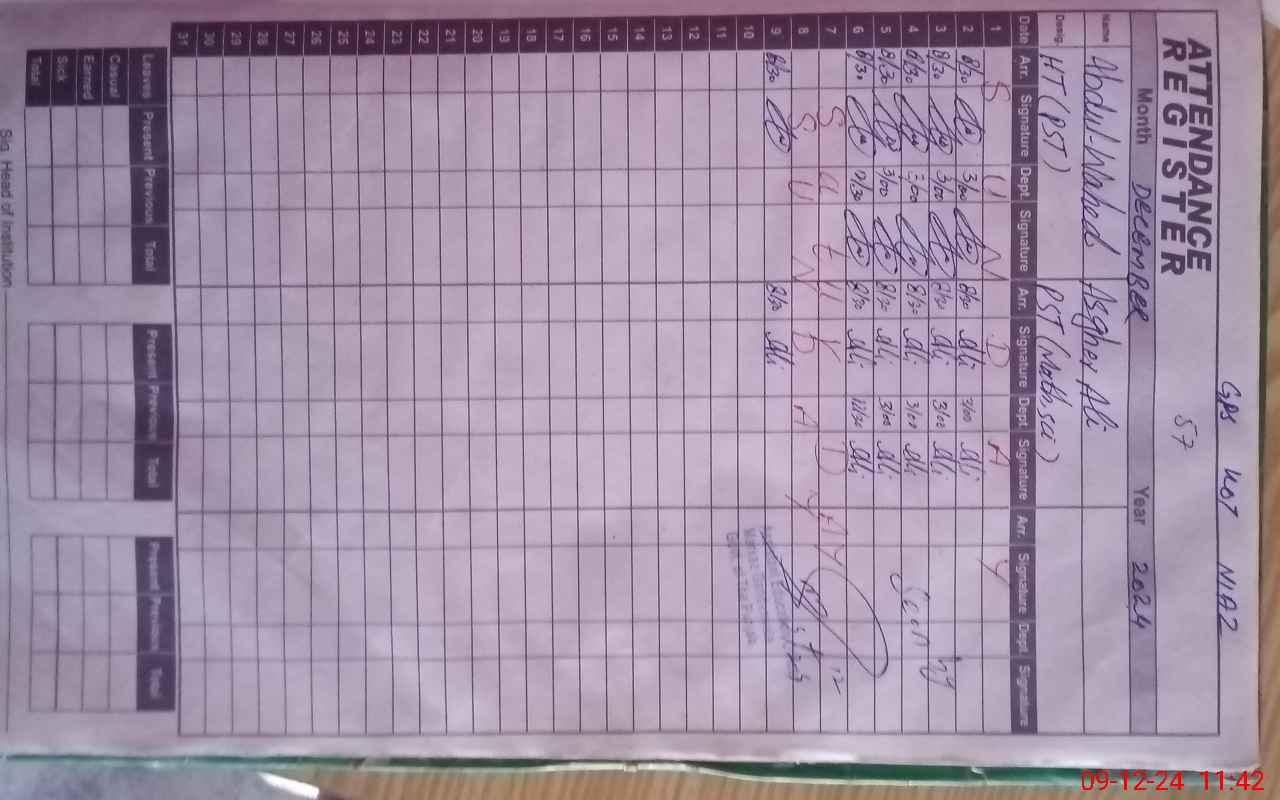 GPS KOT NIAZ
57
ATTENDANCE REGISTER
Month December Year 2024
Name Abdul Waheed Asgher Ali
Desig. HT (PST) PST (Math, sci)
Date Arr. Signature Dept. Signature Arr. Signature Dept Signature Arr. Signature Dept Signature
1 S U N D A Y
2 8/30 3/00 8/30 Ali 3/00 Ali
3 8/30 3/00 8/30 Ali 3/00 Ali
4 8/30 3/00 8/30 Ali 3/00 Ali
5 8/30 3/00 8/30 Ali 3/00 Ali
6 8/30 12/30 8/30 Ali 12/30 Ali
7
8 S U N D A Y
9 8/30 8/30 Ali
10
11
12
13
14
15
16
17
18
19
20
21
22
23
24
25
26
27
28
29
30
31
Leaves Present Previous Total Present Previous Total Present Previous Total
Casual
Earned
Sick
Total
Sig. Head of Institution
09-12-24 11:42